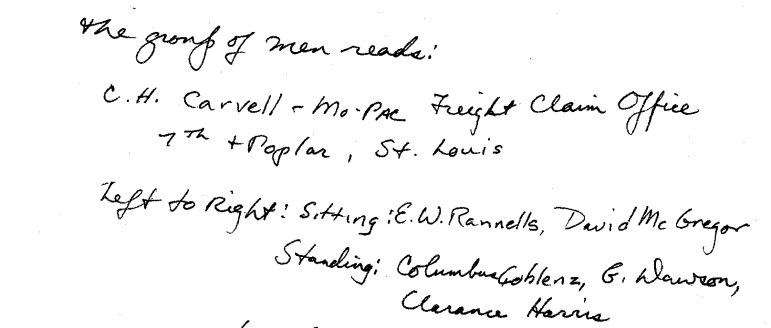 The group of men reads:
C.H. Carvell - Mo-PAC Freight Claim Office
7th + Poplar, St. Louis
Left to Right: Sitting: E.W. Rannells, David McGregor
Standing: Columbus Coblenz, G. Dawson,
Clarance Harris